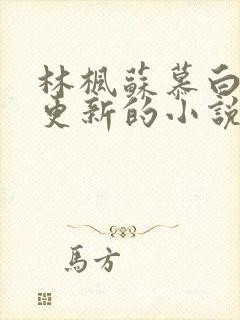 林楓蘇慕白
更新的小說
馬方